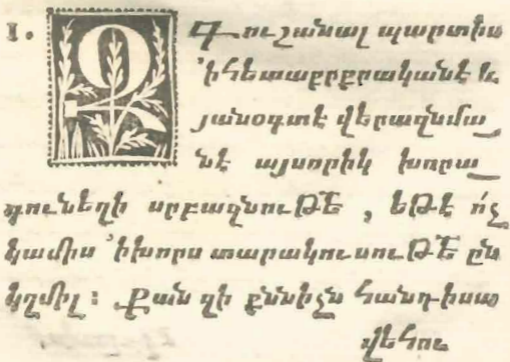 1. ԶԳուշանալ պարտիս
՚ի հետաքրքրականէ և
յանօգտէ վերազնմա_
նէ այսորիկ խորա_
գունեղի սրբազնուԹԵ , եԹէ ո՛չ
կամիս ՚ի խորս տարակուսուԹԵ ըն
կղմիլ : Քան զի քննիչն հանդիսա
վեհու